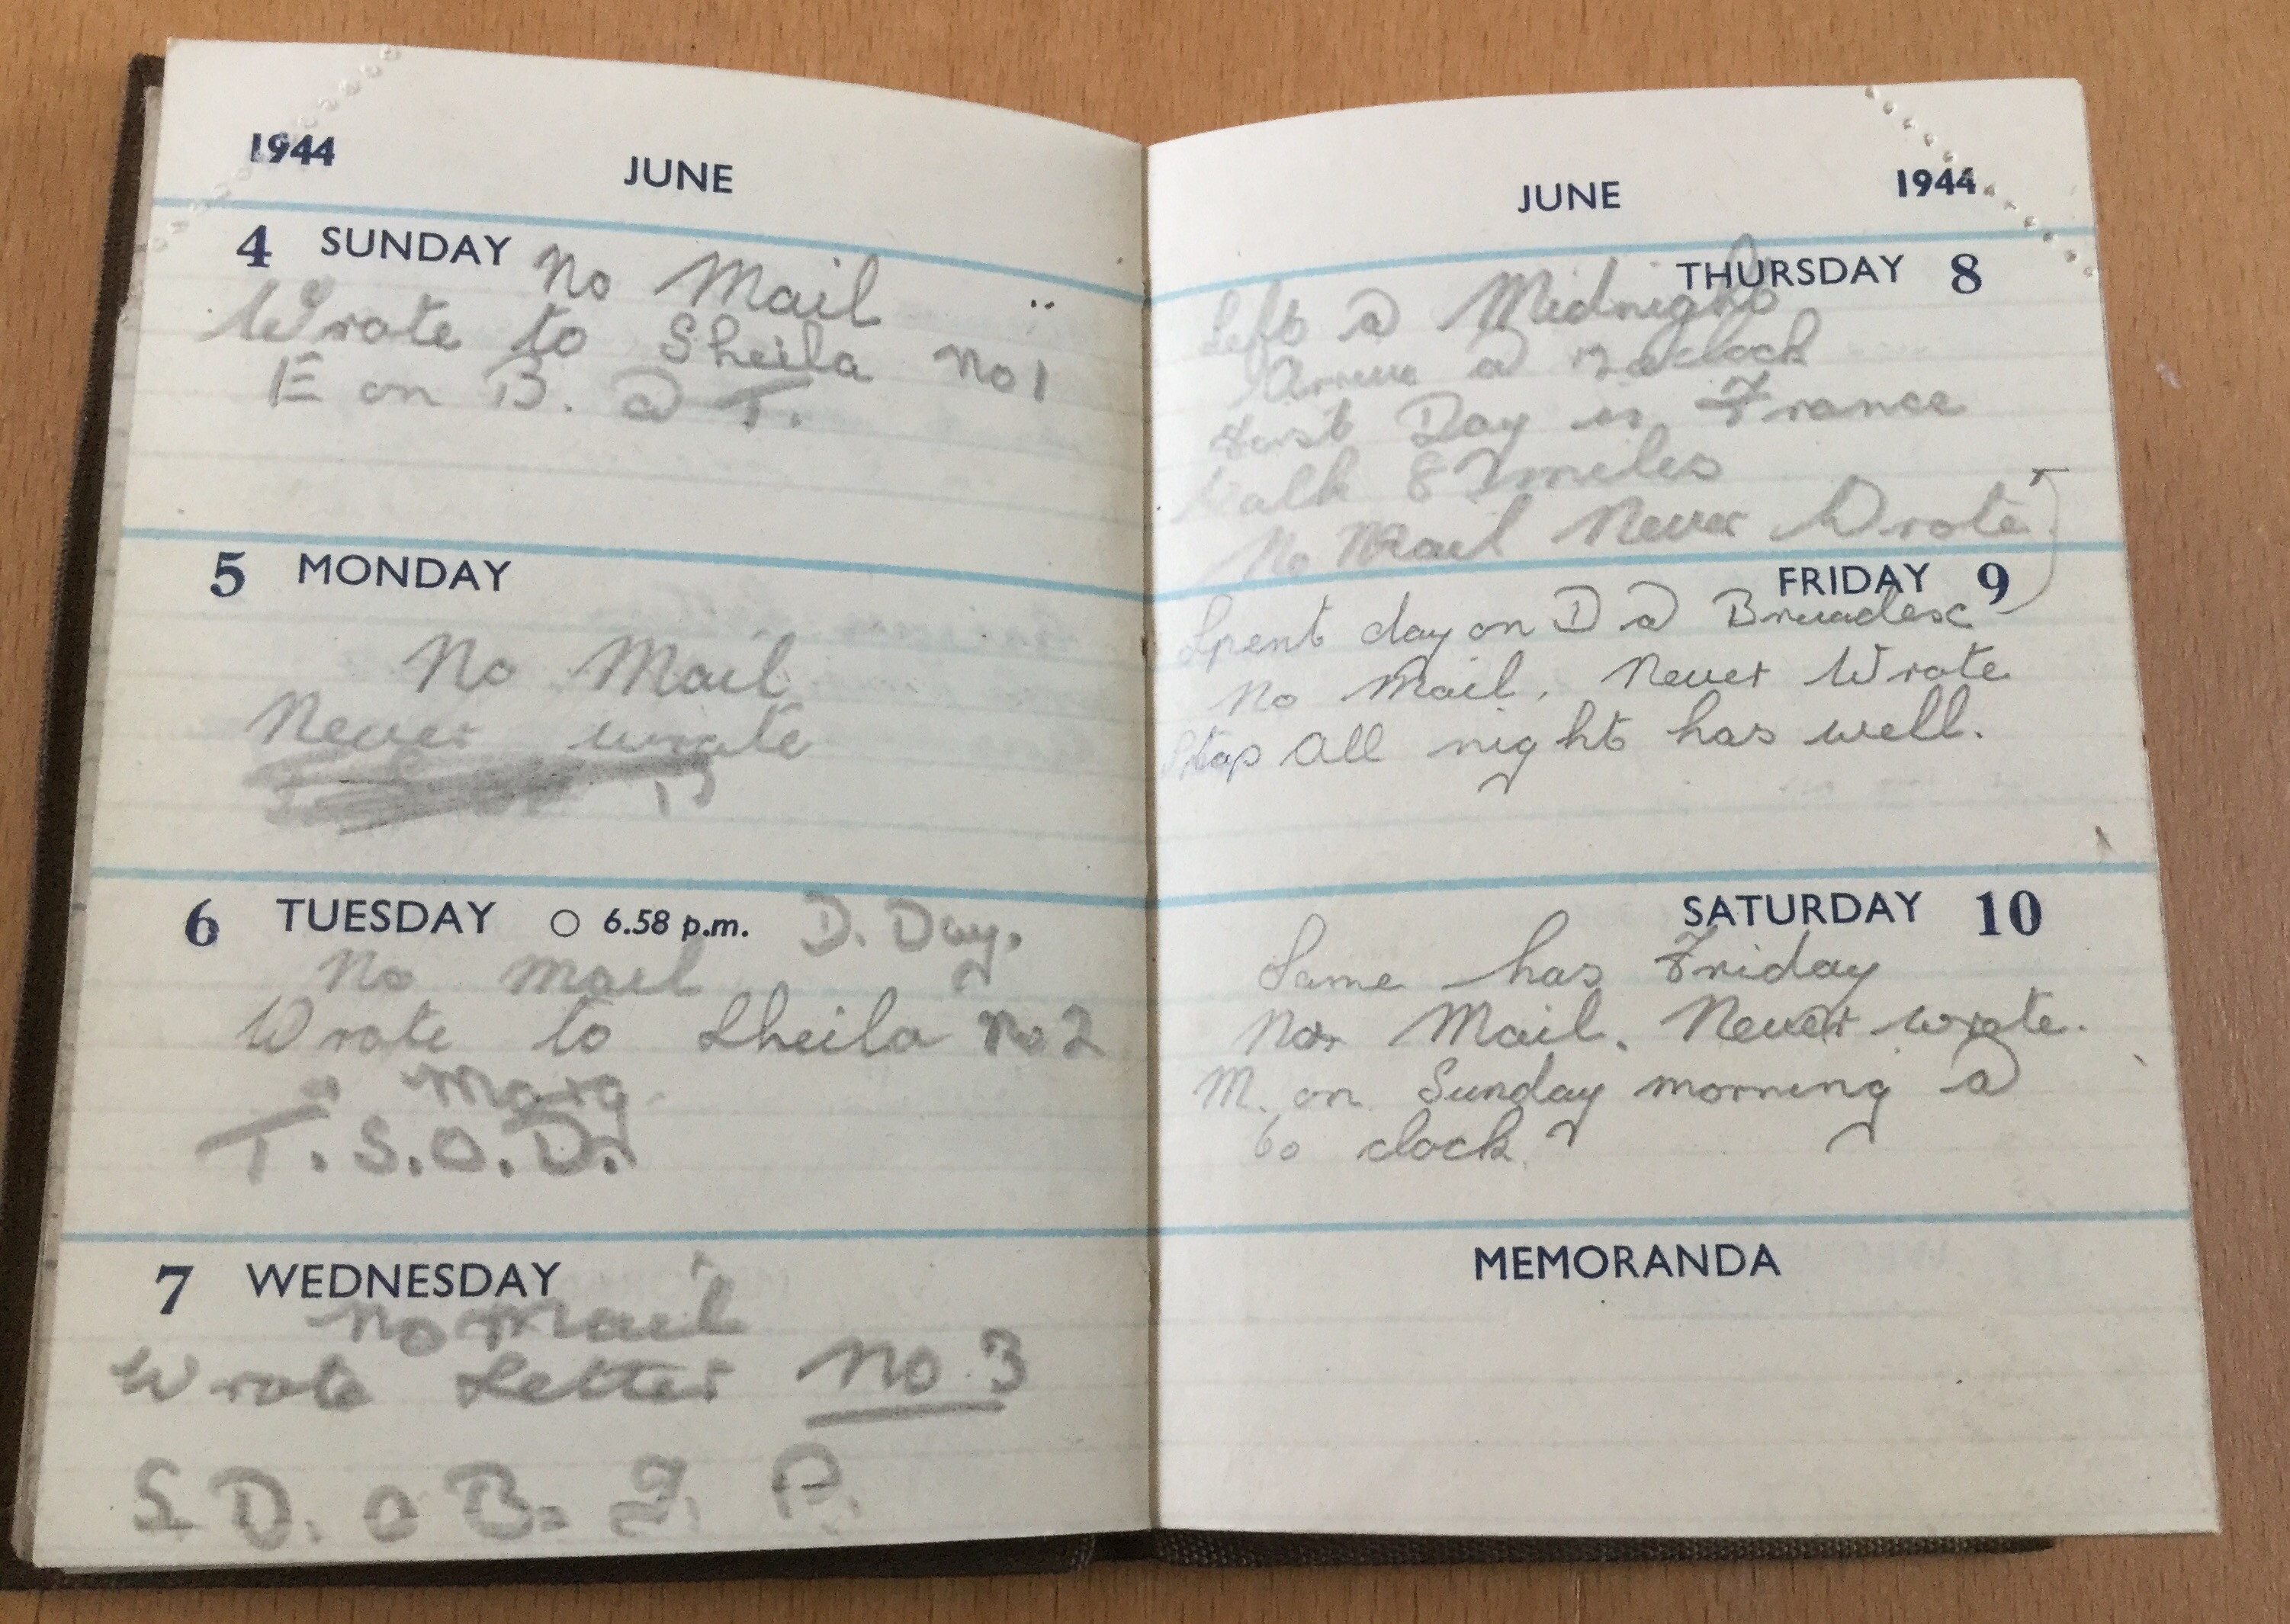 1944 JUNE
4 SUNDAY No Mail
Wrote to Sheila No 1
E on B. @ T.
5 MONDAY
No Mail
Never wrote
6 TUESDAY ○ 6.58 p.m. D. Day.
No Mail
Wrote to Sheila No 2
" Marg.
T. S. O. D.
7 WEDNESDAY
No Mail
Wrote Letter No. 3
S D. O B.
JUNE 1944
THURSDAY 8
Left @ Midnight
Arrive @ o clock
First Day in France
Walk miles
No Mail Never Wrote
FRIDAY 9
Spent day on D @
No Mail. Never Wrote
Stop All night has well.
SATURDAY 10
Same has Friday
No Mail. Never wrote.
M. on Sunday morning @
6 o clock
MEMORANDA